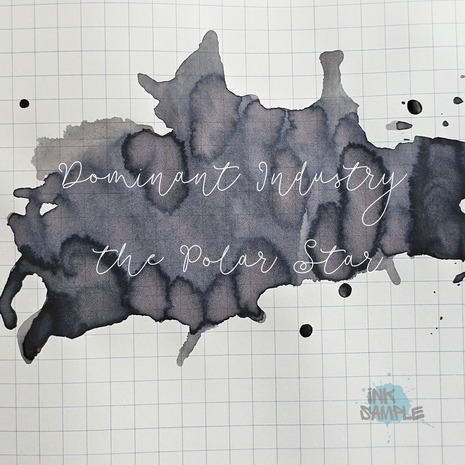 Dominant Industry
the Polar Star
INK
SAMPLE